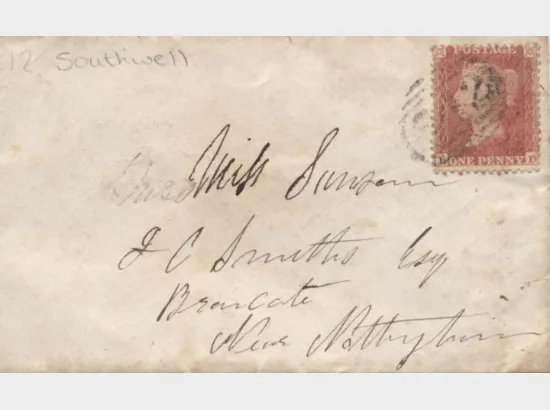 12 Southwell
POSTAGE
ONE PENNY
Miss Sansom
J C Smiths Esq
Bramcote
Near Nottingham